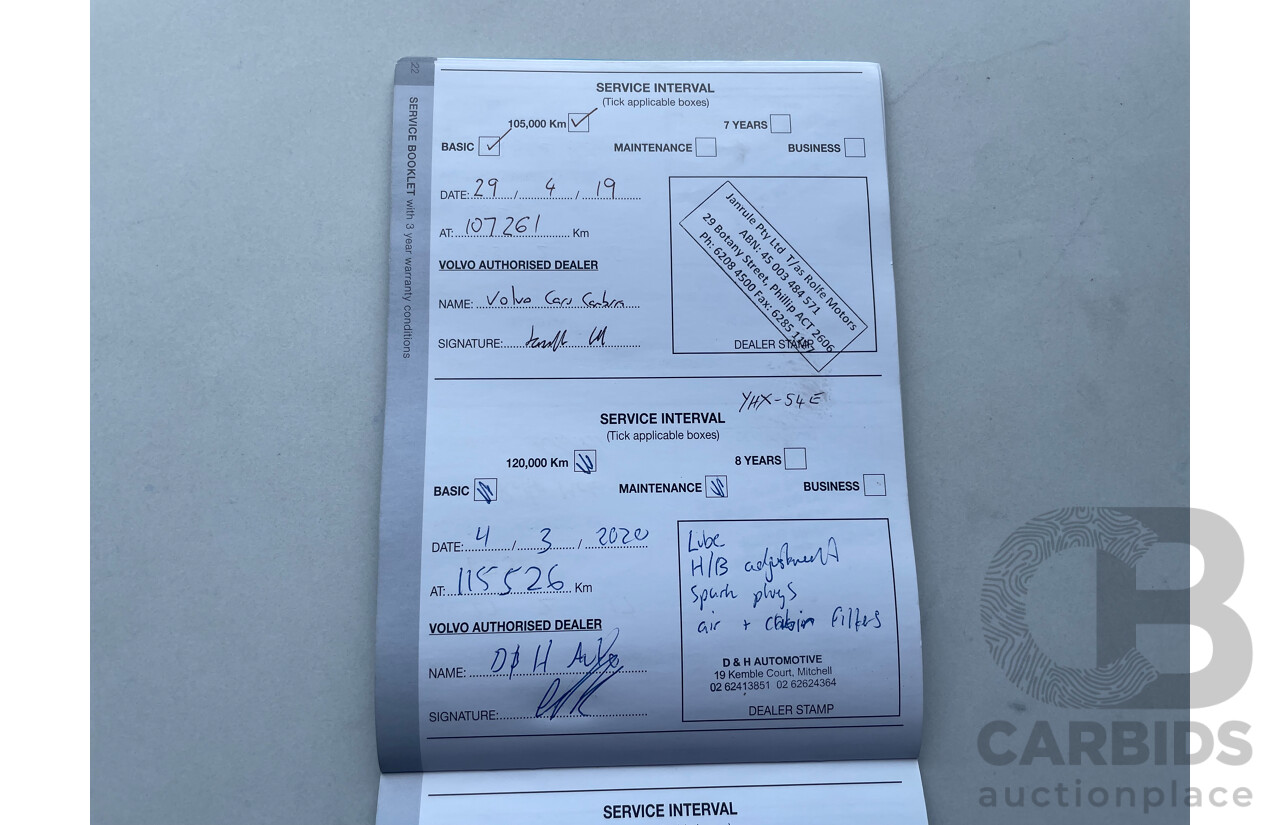 22
SERVICE BOOKLET with 3 year warranty conditions
SERVICE INTERVAL
(Tick applicable boxes)
105,000 Km 7 YEARS
BASIC MAINTENANCE BUSINESS
DATE: 29 / 4 / 19
AT: 107261 Km
VOLVO AUTHORISED DEALER
NAME: Volvo Cars
SIGNATURE:
Janrule Pty Ltd T/as Rolfe Motors
ABN: 45 003 484 571
29 Botany Street, Phillip ACT 2606
Ph: 6208 4500 Fax: 6285
DEALER STAMP
YHX-54E
SERVICE INTERVAL
(Tick applicable boxes)
120,000 Km 8 YEARS
BASIC MAINTENANCE BUSINESS
DATE: 4 / 3 / 2020
AT: 115526 Km
VOLVO AUTHORISED DEALER
NAME: D & H Auto
SIGNATURE:
Lube
H/B adjustment
Spark plugs
air + cabin filters
D & H AUTOMOTIVE
19 Kemble Court, Mitchell
02 62413851 02 62624364
DEALER STAMP
SERVICE INTERVAL
CB
CARBIDS
auctionplace